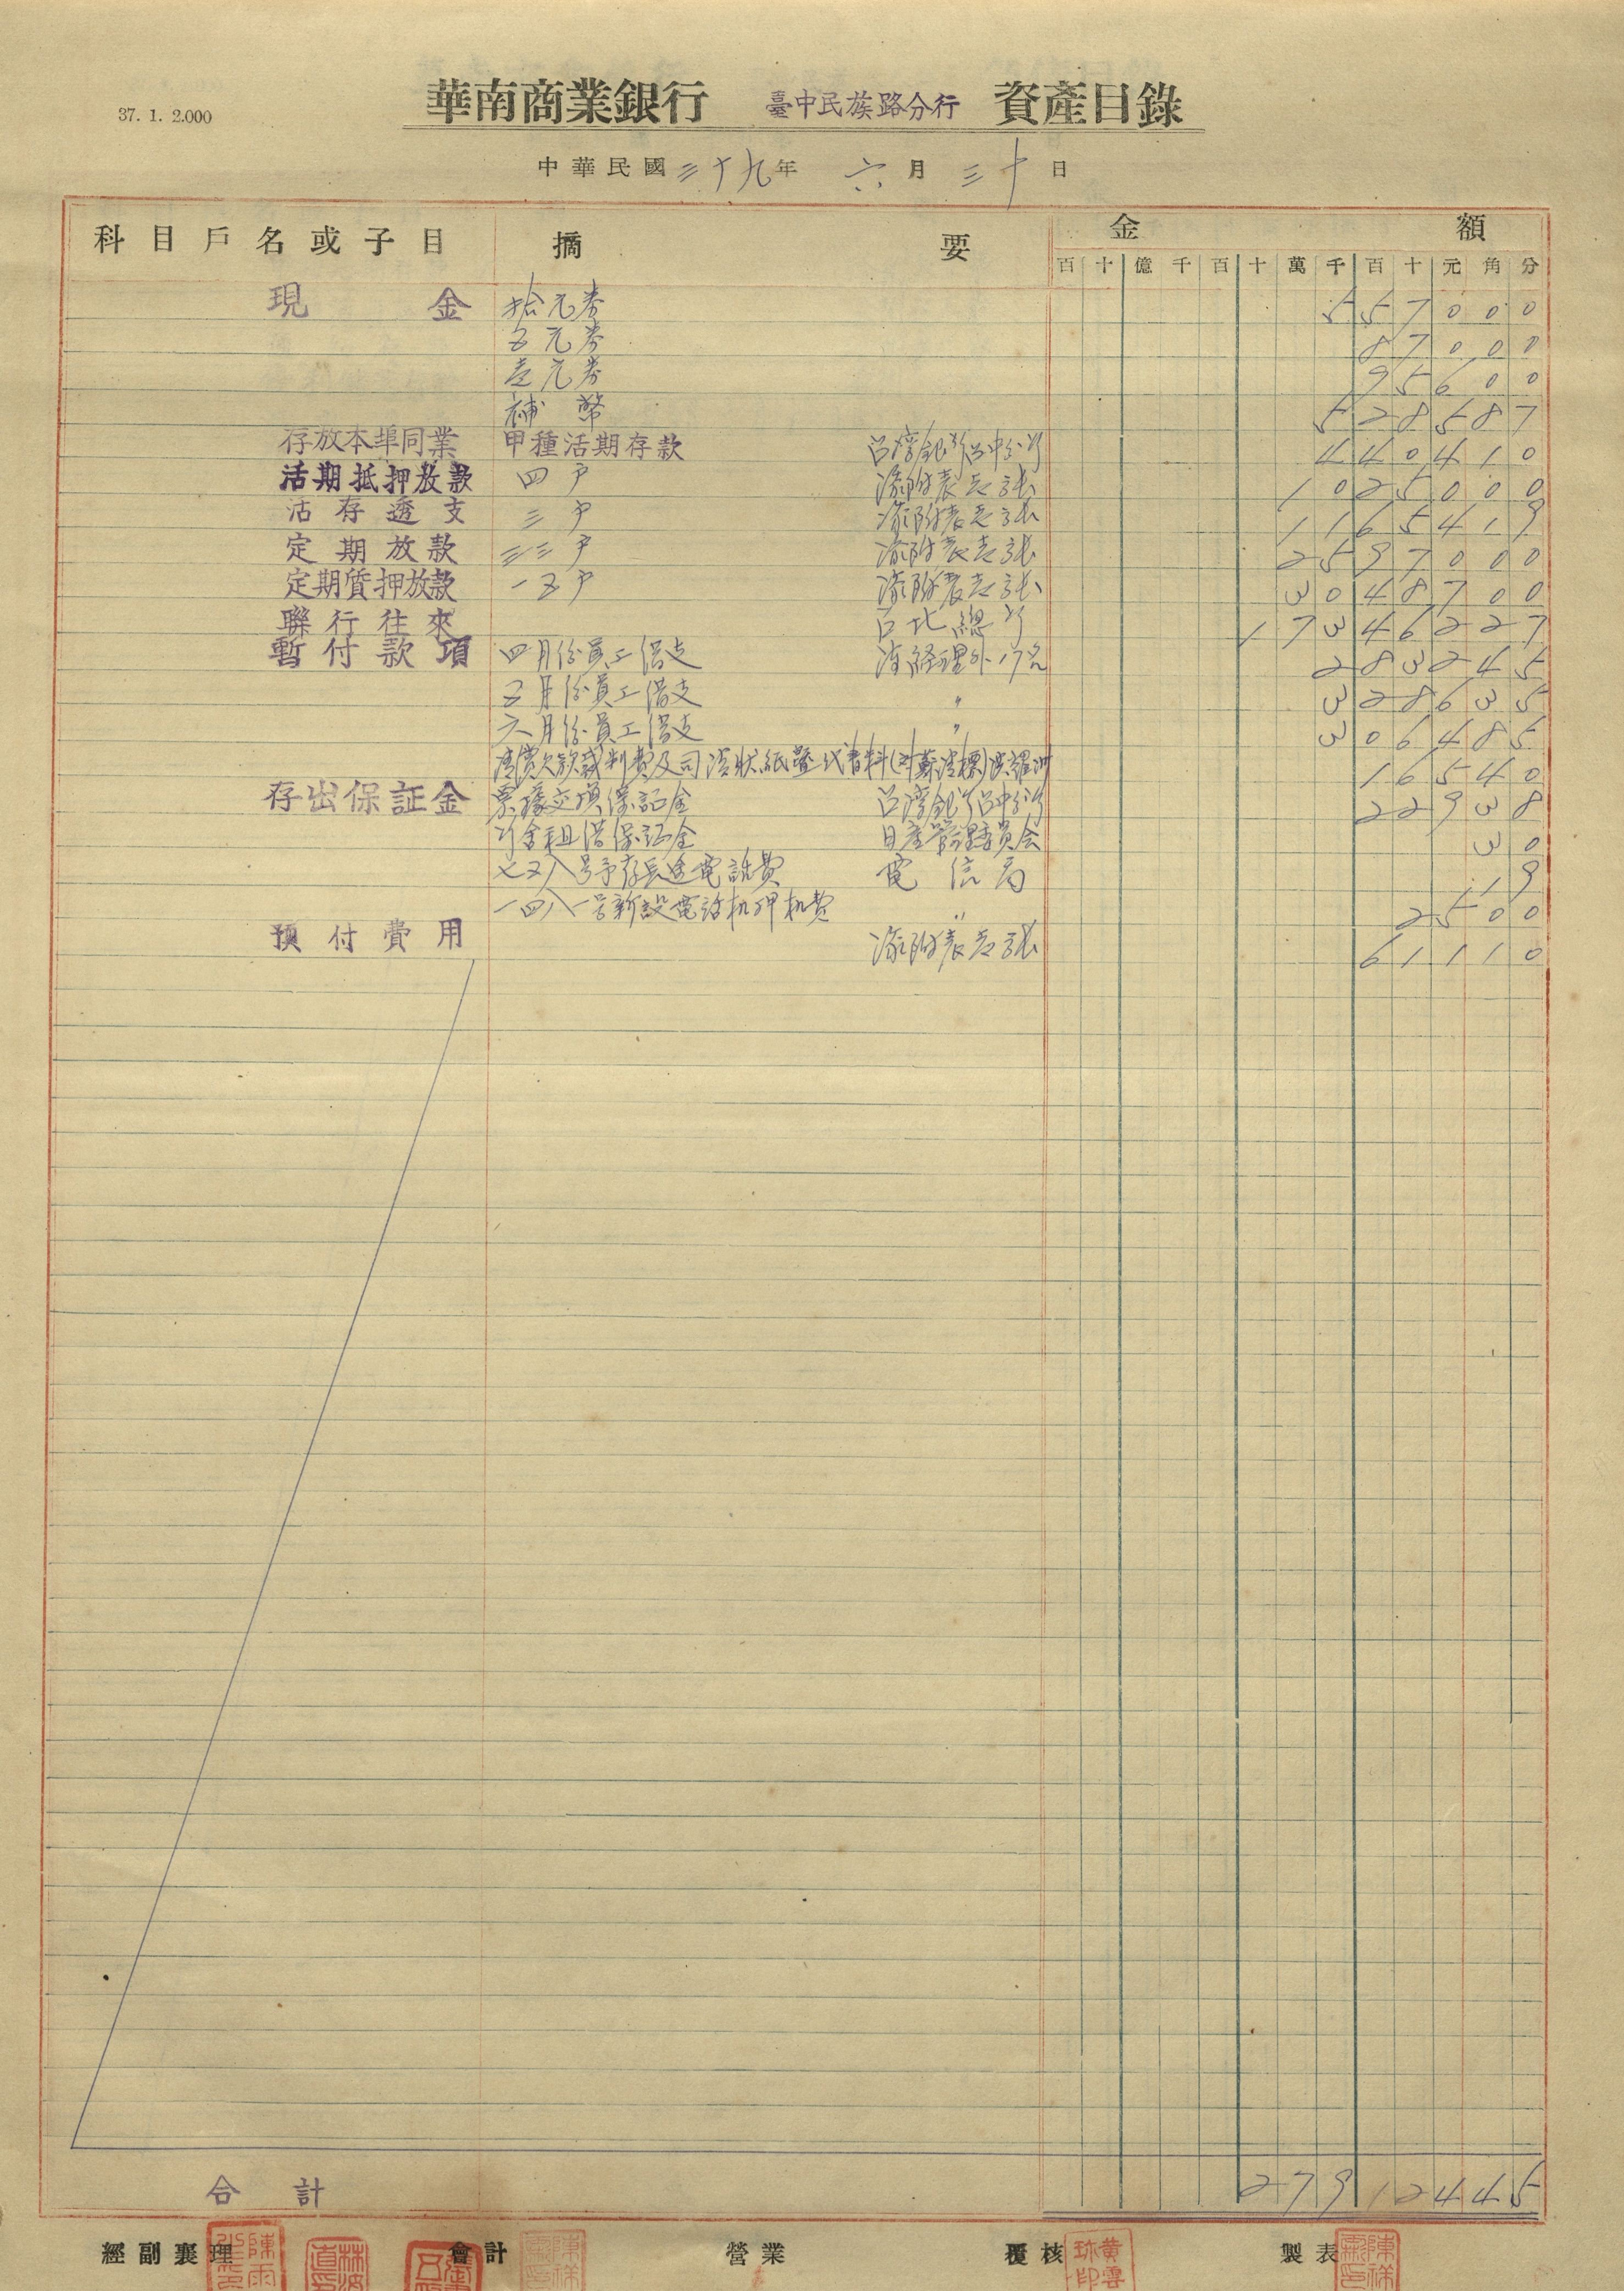 37. 1. 2.000
華南商業銀行 臺中民族路分行 資產目錄
中華民國三十九年 六月三十日
科目戶名或子目 摘要 金額
百十億千百十萬千百十元角分
現金 拾元券 557000
五元券 87000
壹元券 95600
補幣 528587
存放本埠同業 甲種活期存款 台湾銀行台中分行 440410
活期抵押放款 四戶 湶附表壱張 1025000
活存透支 三戶 附表壱張 1165419
定期放款 三三戶 附表壱張 2597000
定期質押放款 一五戶 附表壱張 3048700
聯行往來 台北總行 17346227
暫付款項 四月份員工借支 経理外17名 283245
五月份員工借支 〃 328635
六月份員工借支 〃 306485
清償欠款裁判費及司法狀紙暨代書料 16540
存出保証金 票據交換保証金 台湾銀行台中分行 22938
行舍租借保証金 日產管理委員会 30
七五八号予存長途電話費 電信局 19
一四八一号新設電話机押机費 〃 2500
預付費用 附表壱張 61110
合計 27912445
經副襄理 會計 營業 覆核 製表